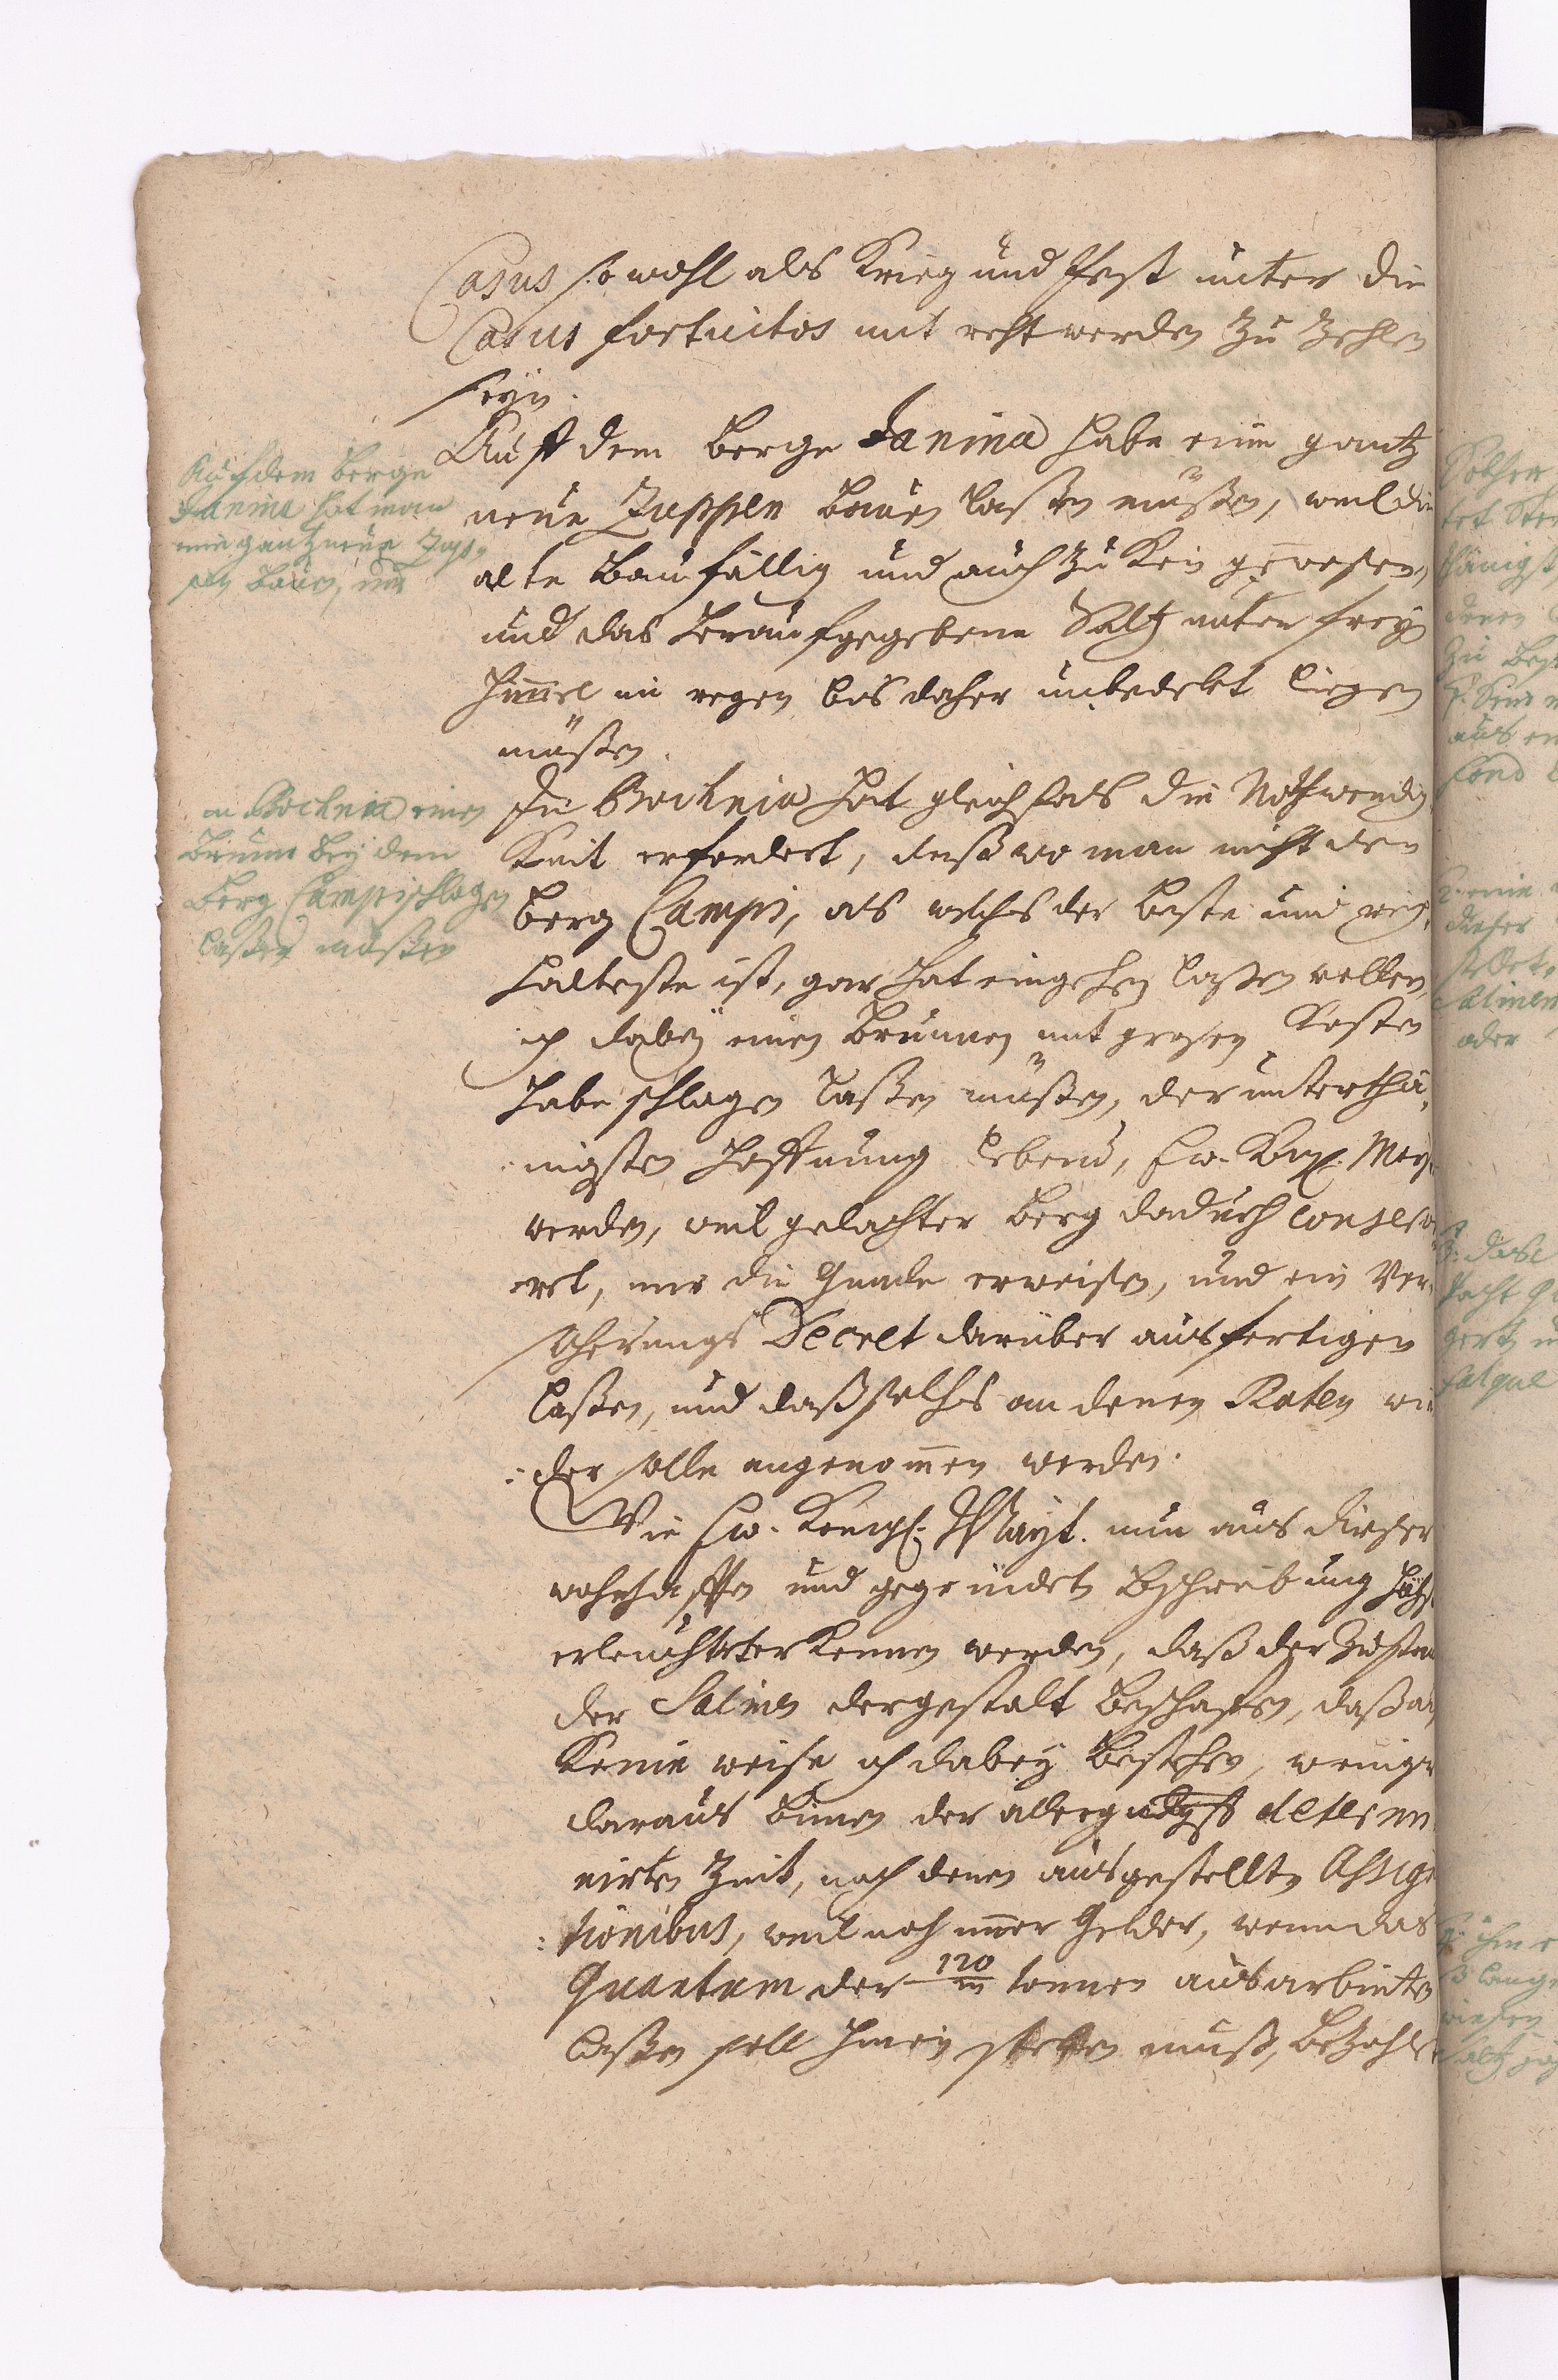 Casus so wohl als Krieg und Pest unter die
Casus fortuitos mit recht werden zu zehlen
seyn.
Auff dem Berge Janina habe eine gantz
neue Zuppen bauen laßen müßen, weil die
alte Baufällig und auch zu klein geweßen,
und das herauf gegebene Saltz unter freyen
Himmel im regen bis daher unbedekt liegen
müßen.
In Bochnia hat gleichfals die Nothwendig
Keit erfordert, daß wo man nicht den
Berg Campi, als welches der beste und reich
haltigste ist, gar hat eingehen laßen wollen,
ich dabey einen Brunnen mit großen Kosten
habe schlagen laßen müßen, der unterthä-
nigsten Hoffnung lebend, Ew. Kön. May.
werden, weil gedachter Berg dadurch conser
irt, mir die Gnade erweisen, und ein Ver-
sicherungs Decret darüber ausfertigen
laßen, und daß solches an denen Raten wie
der solle angenommen werden.
Wie Ew. Königl. Mayt. nun aus dießer
wahrhafften und gegründeten Beschreibung höchst
erleuchtet erkennen werden, daß der Zustand
der Salinen dergestalt beschaffen, daß auf
Keine weise ich dabey bestehen, weniger
daraus binnen der allergndgst determi
nirten Zeit, nach denen ausgestellten Assigna
tionibus, weil noch immer Gelder, wenn das
Quantum der 120/m tonnen ausarbeiten
laßen soll hinein stecken muß, bezahlen
Auf dem Berge
Janina hat man
eine gantz neue Zup-
pen bauen, und
in Bochnia einen
Brunn bey dem
Berg Campi schlagen
laßen müßen